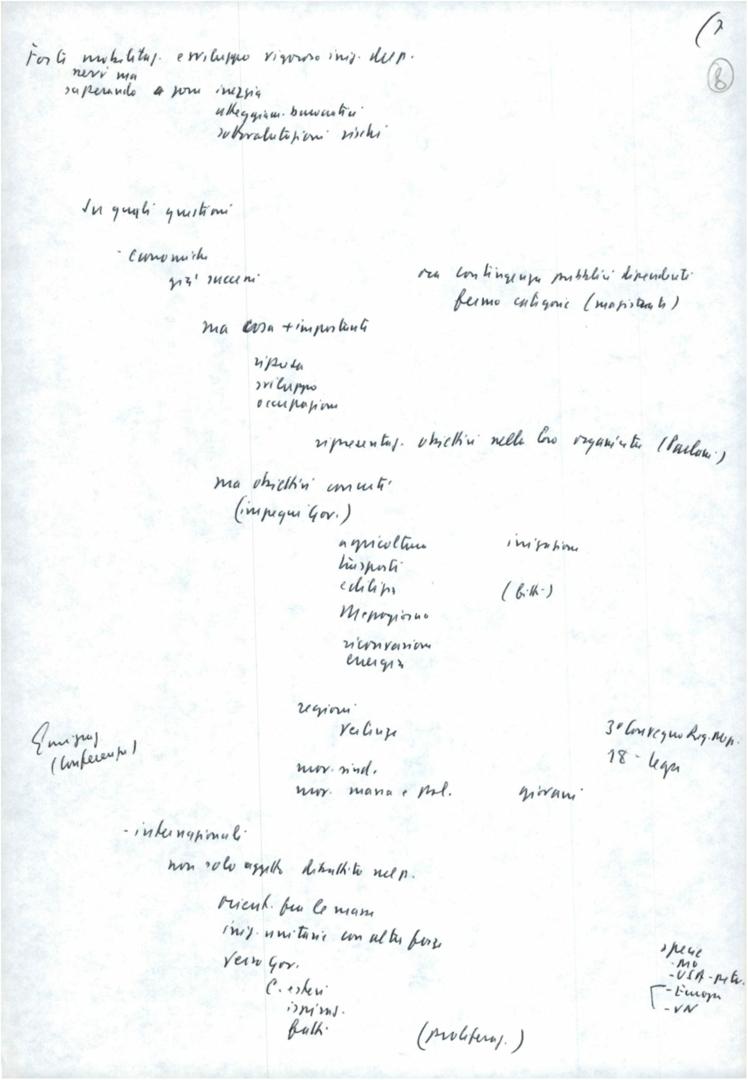 (7
8
Forte mobilitaz. e sviluppo vigoroso iniz. del p.
nervi ma
superando inerzia
atteggiam. burocratici
sottovalutazioni rischi
In quali questioni
- Economiche
già successi
ora contingenza pubblici dipendenti
fermo categorie (magistrati)
ma cosa + importante
ripresa
sviluppo
occupazione
ripresentaz. obiettivi nella loro organicità
ma obiettivi concreti
(impegni Gov.)
agricoltura irrigazione
trasporti
edilizia (fitti)
Mezzogiorno
riconversione
energia
regioni
vertenze
Emigraz.
(Conferenza)
3° Convegno Reg. Mer.
18 - lega
mov. sind.
mov. massa e pol. giovani
- internazionali
non solo oggetto dibattito nel p.
orient. fra le masse
iniz. unitarie con altre forze
verso Gov.
C. esteri
fatti (proliferaz.)
specie
- MO
- USA -
- Europa
- VN